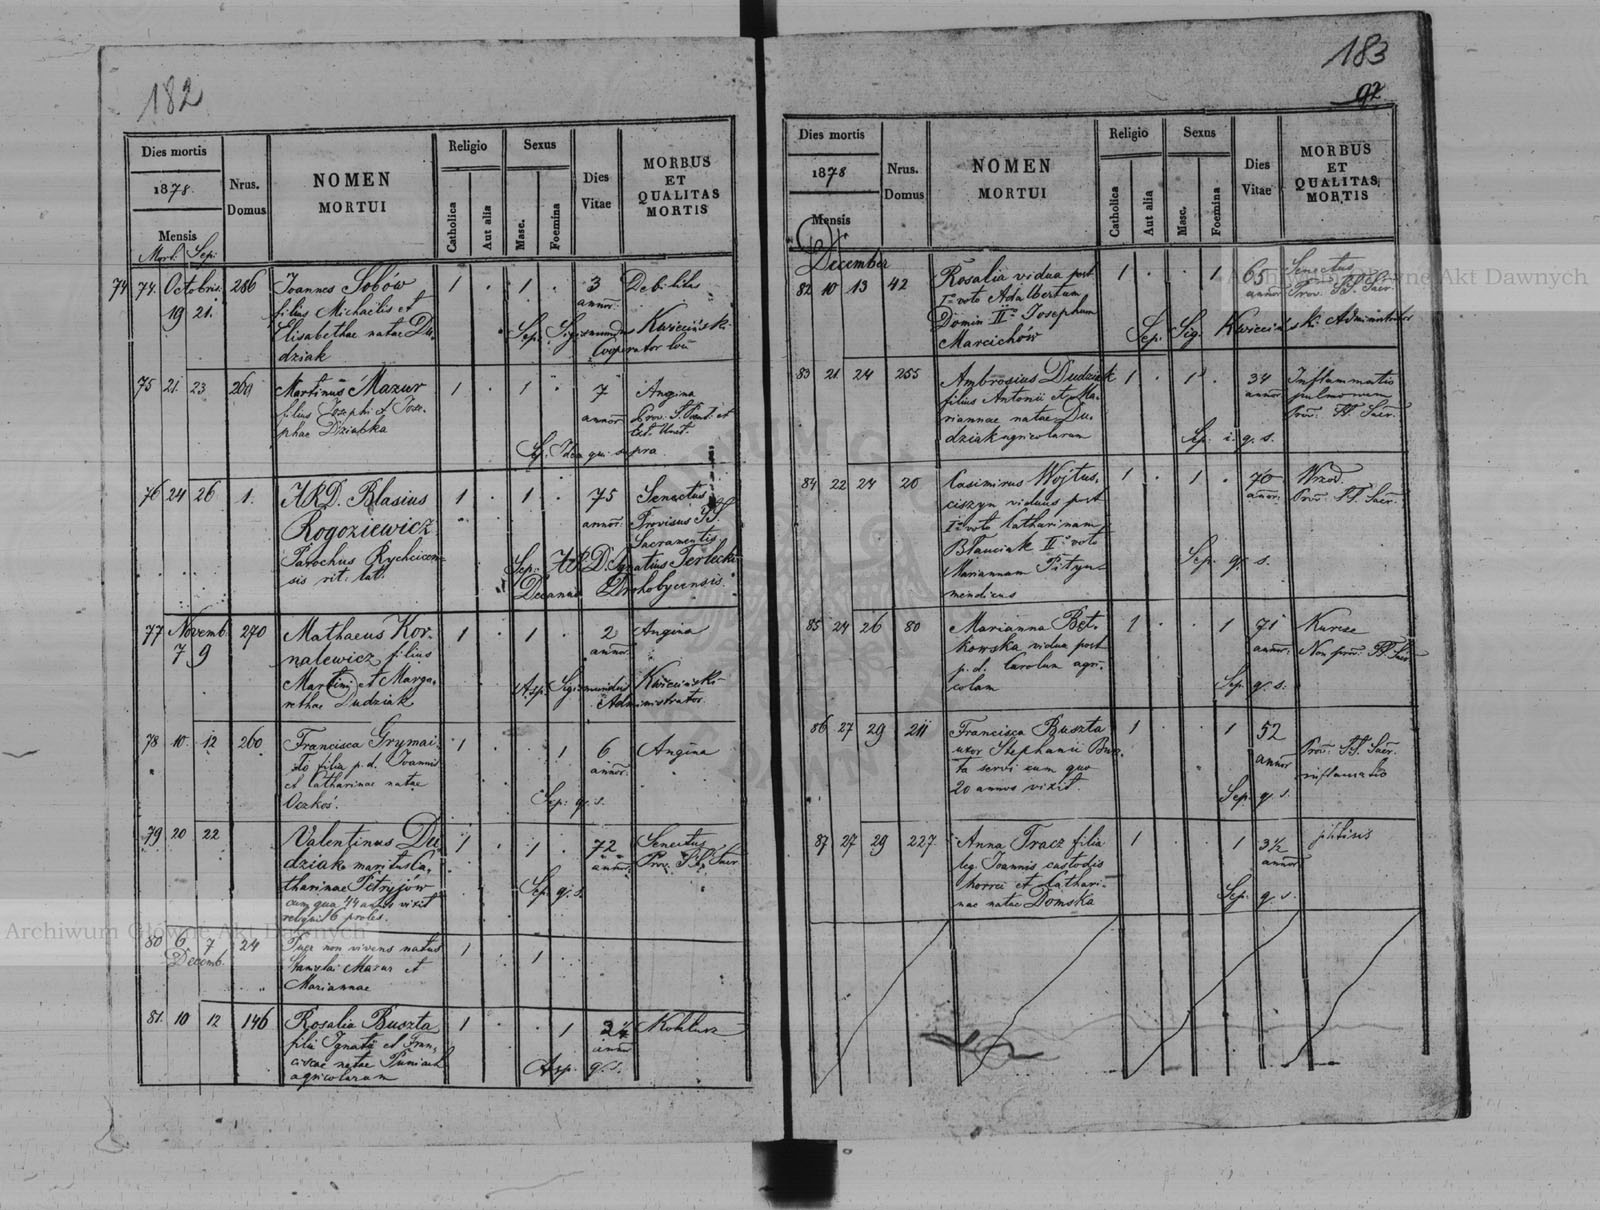 182
Dies mortis
1878.
Mensis
Mort. Sep.
Nrus.
Domus
NOMEN
MORTUI
Religio
Catholica
Aut alia
Sexus
Masc.
Foemina
Dies
Vitae
MORBUS
ET
QUALITAS
MORTIS
74 74. Octobris 286 Joannes Sobów 1 . 1 . 3 Debilitas
19 21. filius Michaelis et annor.
Elisabethae natae Du- Sep. Sigismundus Kwieciński
dziak Cooperator loci
75 21 23 269 Martinus Mazur 1 . 1 . 7 Angina
filius Josephi et Jose- annor. Prov. S. Poenit. et
phae Dziabka Ext. Unct.
Sep. Idem qui supra
76 24 26 1. ARD. Blasius 1 . 1 . 75 Senectus
Rogoziewicz annor. Provisus SS.
Sacramentis
Parochus Rychcicen- Sep. ARD. Ignatius Terlecki
sis rit. lat. Decanus Drohobycensis.
77 Novemb. 270 Mathaeus Kor- 1 . 1 . 2 Angina
7 9 nalewicz filius annor.
Martini et Marga- Asp. Sigismundus Kwieciński
rethae Dudziak Administrator.
78 10. 12 260 Francisca Grymai- 1 . . 1 6 Angina
ło filia p. d. Joannis annor.
et Catharinae natae
Oczkoś. Sep. q. s.
79 20 22 Valentinus Du- 1 . 1 . 72 Senectus
dziak maritus Ca- annor. Prov. SS. Sacr.
tharinae Pitryjów Sep. q. s.
cum qua 44 annos vixit
reliquit 6 proles.
80 6 7 24 Puer non vivens natus 1 1
Decemb. Stanislai Mazur et
Mariannae
81. 10 12 146 Rosalia Buszta 1 . . 1 Koklusz
filia Ignatii et Fran-
ciscae natae Puniach Asp. q. s.
agricolarum
183
92
Dies mortis
1878
Mensis
Nrus.
Domus
NOMEN
MORTUI
Religio
Catholica
Aut alia
Sexus
Masc.
Foemina
Dies
Vitae
MORBUS
ET
QUALITAS
MORTIS
December
82 10 13 42 Rosalia vidua post 1 . . 1 65 Senectus
I voto Adalbertum annor Prov. SS. Sacr.
Domin II Josephum
Marcichów Sep. Sig. Kwieciński Administrator
83 21 24 255 Ambrosius Dudziak 1 . 1 . 34 Inflammatio
filius Antonii et Ma- annor pulmonum
riannae natae Du- Prov. SS. Sacr.
dziak agricolarum Sep. i. q. s.
84 22 24 20 Casimirus Wojtus- 1 . 1 . 70 Wrzod.
ciszyn viduus post annor. Prov. SS. Sacr.
I voto Catharinam
Błauciak II voto Sep. q. s.
Mariannam Pityn
mendicus
85 24 26 80 Marianna Bęt- 1 . . 1 71 Kurcze
kowska vidua post annor. Non prov. SS. Sacr.
p. d. Carolum agri-
colam Sep. q. s.
86 27 29 211 Francisca Buszta 1 . . 1 52
uxor Stephanii Busz- annor Prov. SS. Sacr.
ta servi cum quo inflamatio
20 annos vixit. Sep. q. s.
87 27 29 227. Anna Tracz filia 1 . . 1 3½ phtisis
leg. Joannis custodis annor
horrei et Cathari- Sep. q. s.
nae natae Domska
Archiwum Główne Akt Dawnych
Archiwum Główne Akt Dawnych